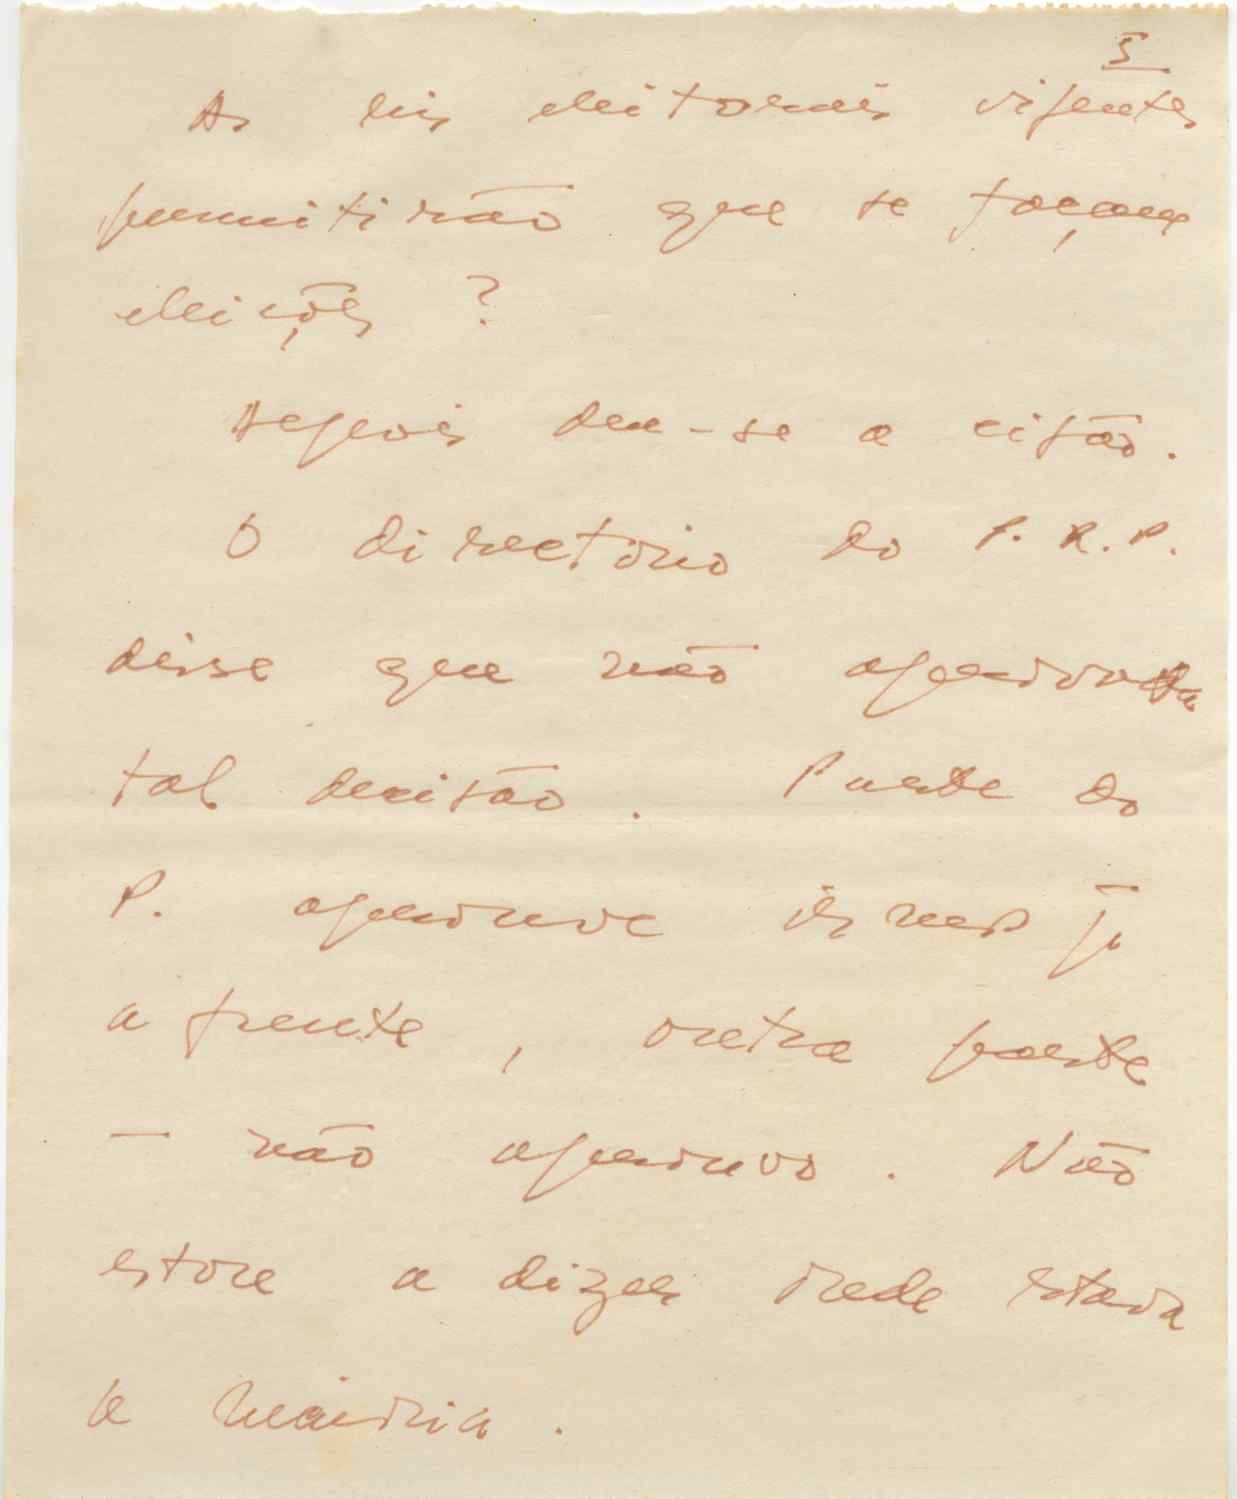 5
As leis eleitorais vigentes
permitirão que se façam
eleições?
Depois deu-se a cisão.
O directório do P. R. P.
disse que não aprovava
tal decisão. Parte do
P. aprovou
a frente, outra parte
— não aprovou. Não
estou a dizer onde estava
a maioria.